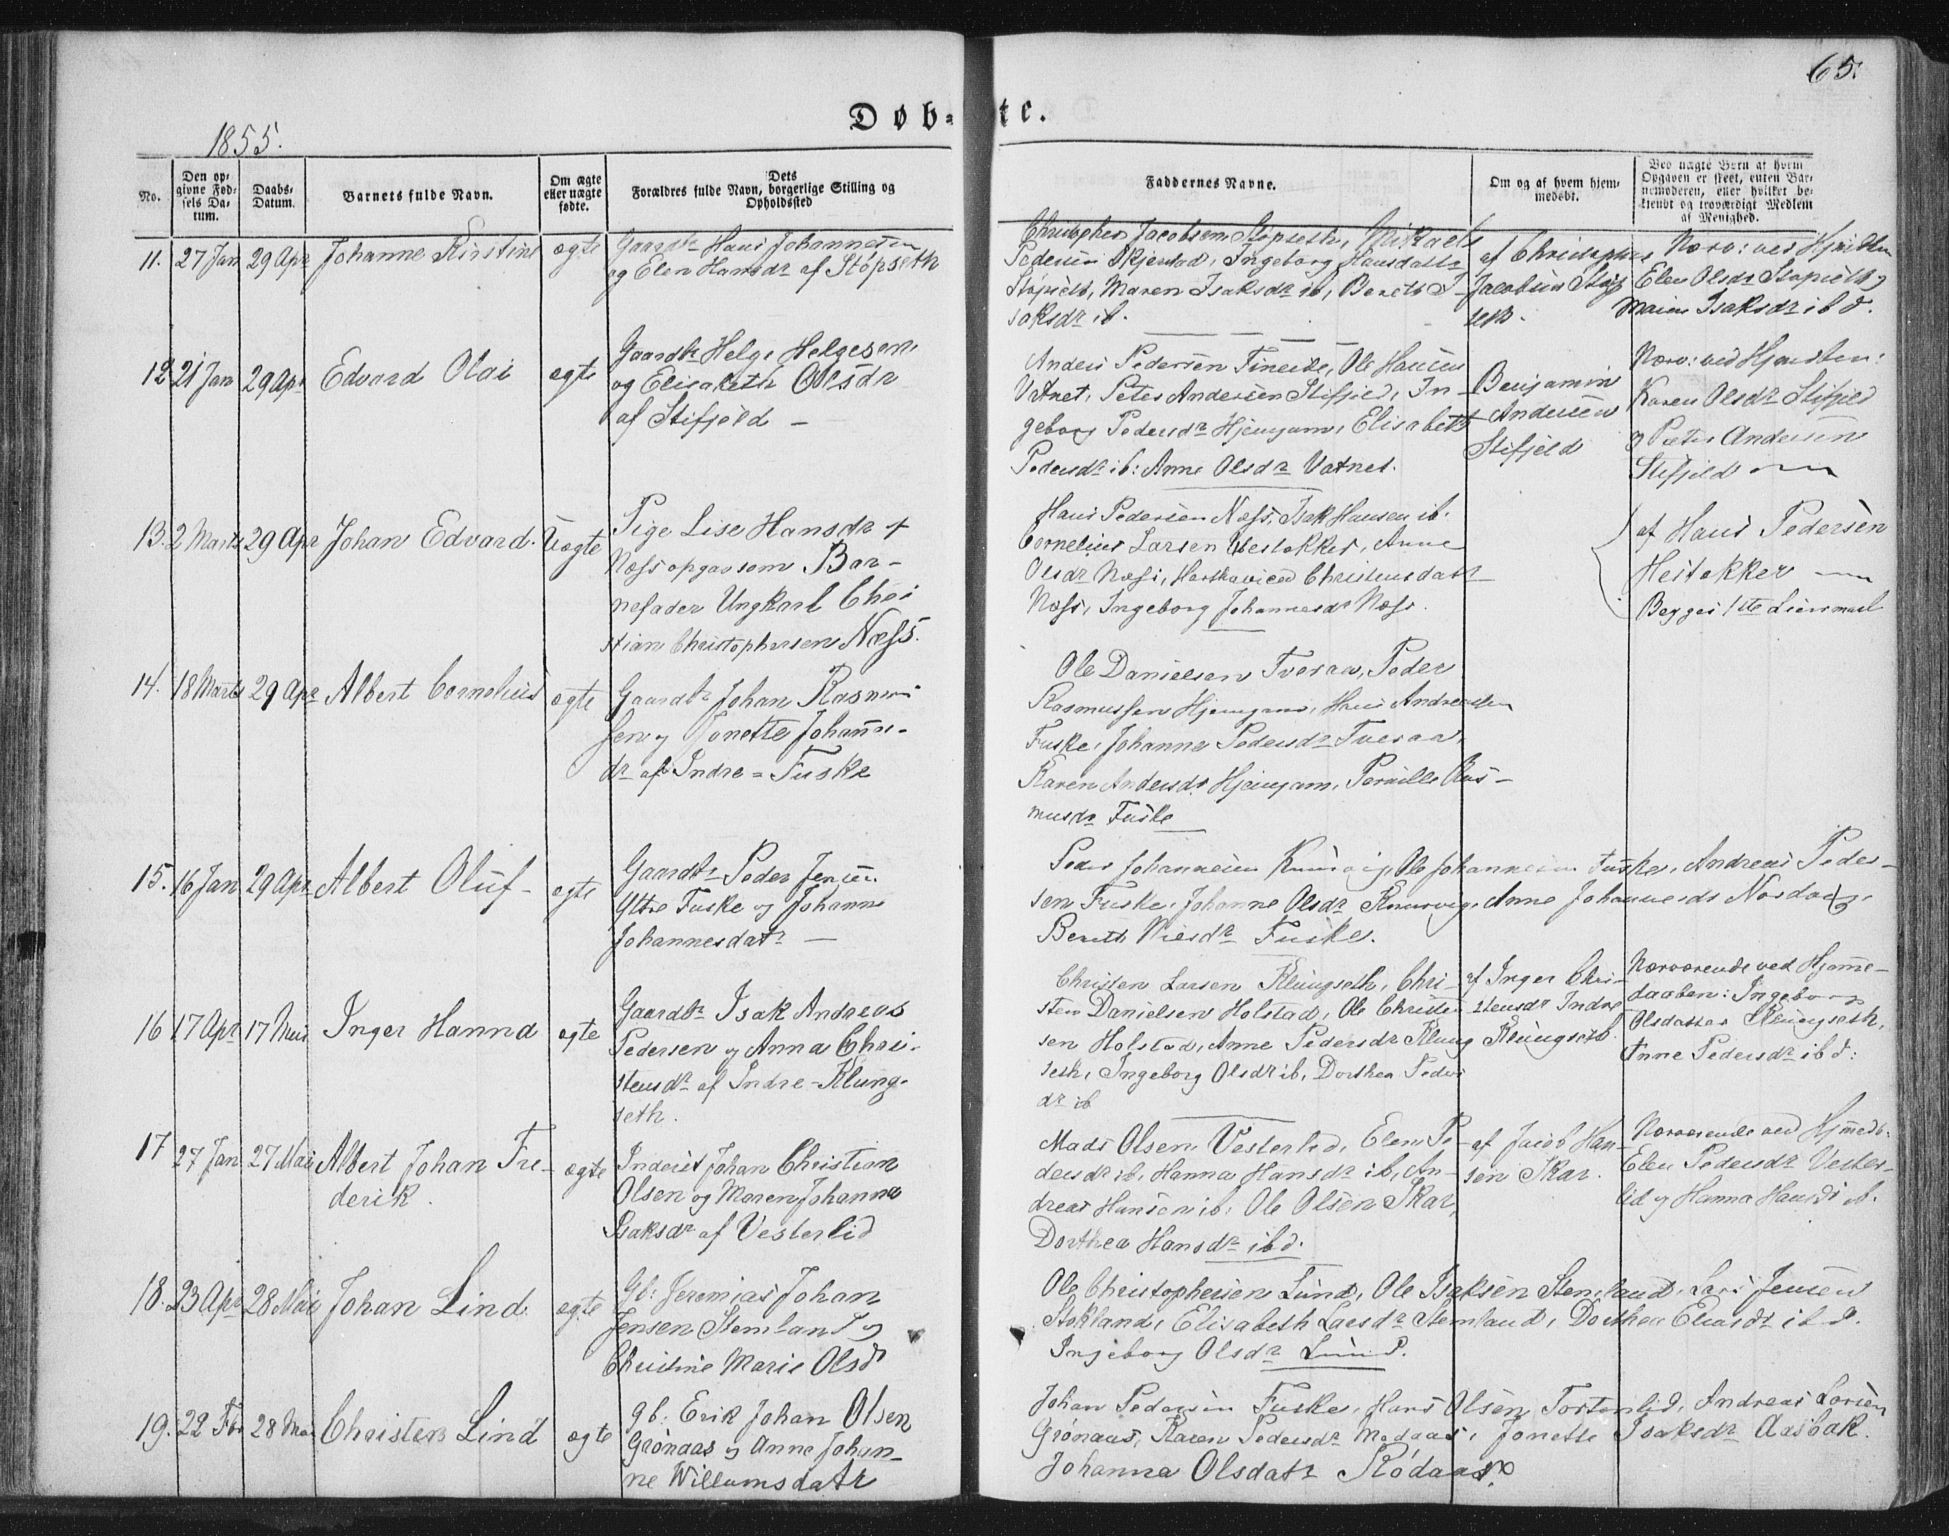 65.
Døb-te.
1855.
No.
Den op-
givne Fød-
sels Da-
tum.
Daabs-
Datum.
Barnets fulde Navn.
Om ægte
eller uægte
fødte.
Dets
Forældres fulde Navn, borgerlige Stilling og
Opholdssted
Faddernes Navne.
Om og af hvem hjem-
medøbt.
Ved uægte Børn af hvem
Opgaven er skeet, enten Bar-
nemoderen, eller hvilket be-
kjendt og troværdigt Medlem
af Menighed.
11. 27 Jan 29 Apr Johanne Kirstine ægte
Gaardbr Hans Johannesen
og Elen Hansdr af Støpseth
Christopher Jacobsen Støpseth, Mikael
Pedersen Skjerstad, Ingeborg Hansdattr
Støpseth, Maren Isaksdr ib, Bereth I-
saksdr ib.
af Christopher
Jacobsen Støp
seth.
Nærv: ved Hjemdben
Elen Olsdr Støpseth og
Maren Isaksdr ibd.
12 21 Jan 29 Apr Edvard Olai ægte
Gaardbr Helge Helgesen
og Elisabeth Olsdr
af Stifjeld –
Anders Pedersen Fineide, Ole Hansen
Vatnet, Peter Andersen Stifjeld, In-
geborg Pedersdr Hjemgam, Elisabeth
Pedersdr ib: Anne Olsdr Vatnet.
Benjamin
Andersen
Stifjeld
Nærv: ved Hjemdben:
Karen Olsdr Stifjeld
og Peter Andersen
Stifjeld
13. 2 Marts 29 Apr Johan Edvard. Uægte
Pige Lise Hansdr +
Næss opgav som Bar-
nefader Ungkarl Chri
stian Christophersen Næss.
Hans Pedersen Næss, Isak Hansen ib.
Cornelius Larsen Hestekker, Anne
Olsdr Næss, Christensdatr
Næss, Ingeborg Johannesdr Næss.
af Hans Pedersen
Hestekker
Begges 1ste Leiermaal
14. 18 Marts 29 Apr Albert Cornelius ægte
Gaardbr Johan Rasmus
sen og Jonette Johanne-
dr af Indre-Fuske
Ole Danielsen Tveraa, Peder
Rasmussen Hjemgam, Hans Andreassen
Fuske, Johanne Pedersdr Tveraa,
Karen Andersdr Hjemgam, Pernille Ras-
musdr Fuske
15. 16 Jan 29 Apr Albert Oluf- ægte
Gaardbr Peder Jensen
Yttre Fuske og Johanne
Johannesdatr –
Peder Johannesen Knurvig, Ole Johannesen Fuske, Andreas Peder-
sen Fuske, Johanne Olsdr Knurvig, Anne Johannesdr Nordvig,
Bereth Nielsdr Fuske.
16 17 Apr 17 Mai Inger Hanna ægte
Gaardbr Isak Andreas
Pedersen og Anna Chri-
stensdr af Indre-Klung-
seth.
Christen Larsen Klungseth, Chri-
sten Danielsen Holstad, Ole Christen
sen Holstad, Anne Pedersdr Klung
seth, Ingeborg Olsdr ib, Dorthea Peders
dr ib
af Inger Chri-
stensdr Indre
Klungseth.
Nærværende ved Hjemme-
daaben: Ingeborg
Olsdatter Klungseth,
Anne Pedersdr ibd:
17 27 Jan 27 Mai Albert Johan Fre-
derik. ægte
Inderst Johan Christian
Olsen og Maren Johanna
Isaksdr af Vesterlid
Mads Olsen Vesterlid, Elen Pe-
dersdr ib, Hanna Hansdr ib, An-
dreas Hansen ib, Ole Olsen Skar,
Dorthea Hansdr ibd.
af Jacob Han-
sen Skar.
Nærværende ved Hjmedb:
Elen Pedersdr Vester-
lid og Hanna Hansdr ib.
18. 23 Apr 28 Mai Johan Lind. ægte
Gb: Jeremias Johan
Jensen Stemland og
Christine Marie Olsdr
Ole Christophersen Lund, Ole Isaksen Stemland, Lars Jensen
Stokland, Elisabeth Larsdr Stemland, Dorthea Eliasdr ibd.
Ingeborg Olsdr Lund.
19. 22 Fbr 28 Mai Christen Lind ægte
gb: Erik Johan Olsen
Grønaas og Anna Johan-
ne Willumsdatr
Johan Pedersen Fuske, Hans Olsen Tortenlid, Andreas Larsen
Grønaas, Karen Pedersdr Medaas, Jonette Isaksdr Aasbak.
Johanna Olsdatr Rødaas.